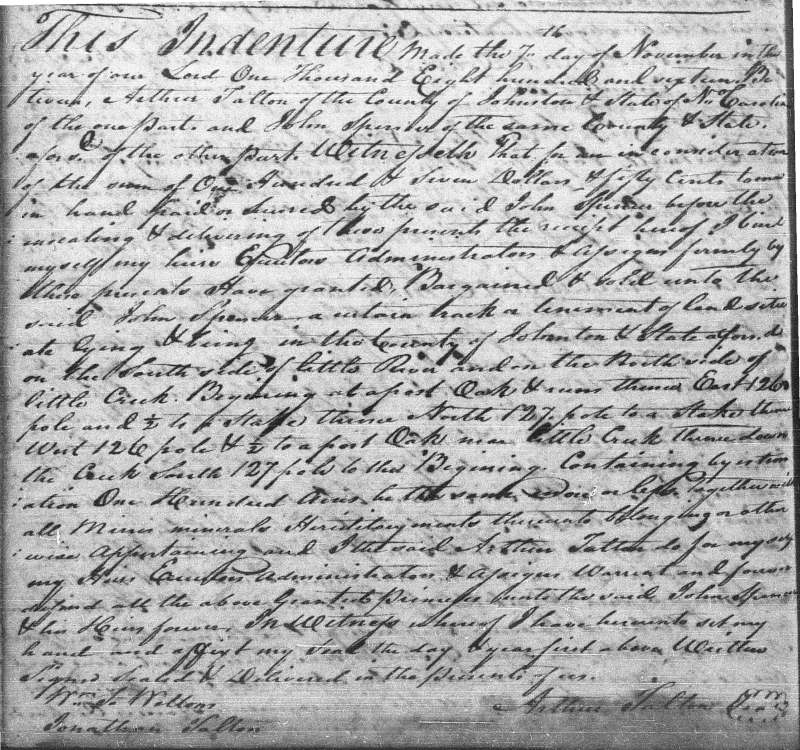 This Indenture Made the 7th day of November in the
year of our Lord One Thousand Eight hundred and sixteen Be
tween, Arthur Talton of the County of Johnston & State of No. Carolina
of the one Part and John Spencer of the same County & State
afors.d of the other Part Witnesseth That for an in consideration
of the sum of One Hundred & Seven Dollars & fifty Cents to me
in hand paid or secured by the said John Spencer before the
ensealing & delivering of these presents the receipt hereof I bind
myself my heirs Executors Administrators & Assigns firmly by
these presents Have granted, Bargained & sold unto the
said John Spencer a certain track or tenement of land situ
ate lying & being in the County of Johnston & State afors.d
on the South side of little River and on the North side of
little Creek. Begining at a post Oak & runs thence East 126
pole and ½ to a Stake thence North 127 pole to a Stake thence
West 126 pole & ½ to a post Oak near little Creek thence down
the Creek South 127 pole to the Begining. Containing by estim
ation One Hundred Acres be the same more or less, Together with
all Mines minerals Hereditaments thereunto belonging or other
wise appertaining and I the said Arthur Talton do for myself
my Heirs Executors administrators & Assigns Warrant and forever
defend all the above Granted Primises unto the said John Spencer
& his Heirs forever, In Witness whereof I have hereunto set my
hand and affixt my Seal the day & year first above Written
Signed Sealed & Delivered in the Presents of us.
Wm. S. Wellons
Arthur Talton
Jonathan Talton